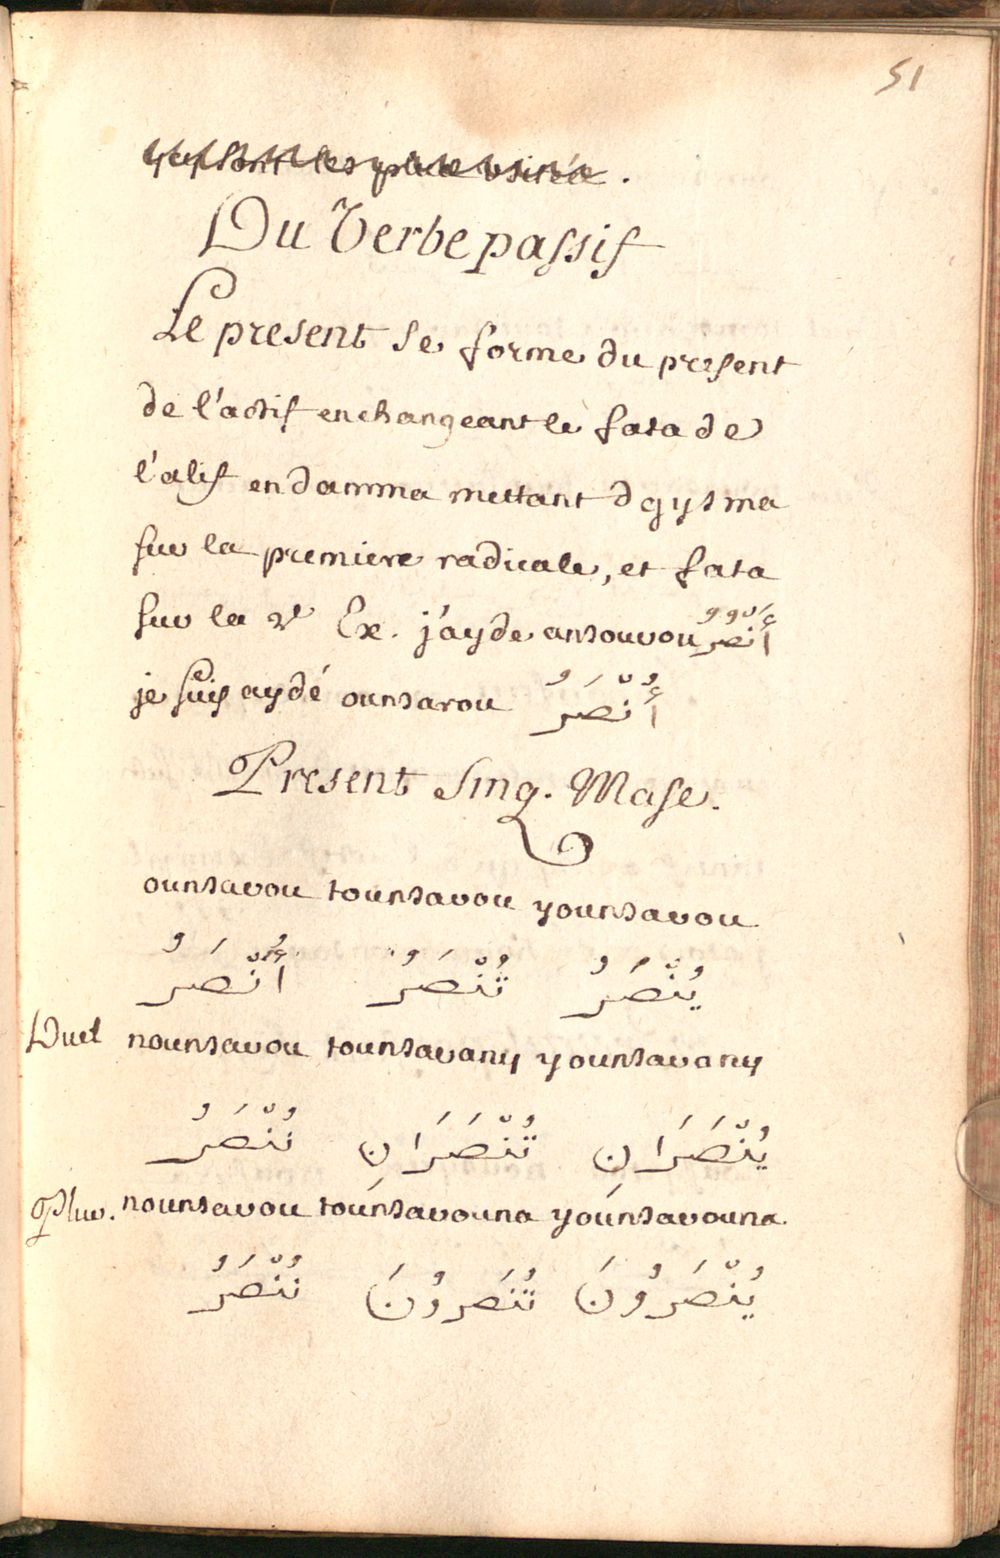 51
qui sont les plus usités.
Du Verbe passif
Le present se forme du present
de l'actif en changeant le fata de
l'alif en damma mettant dgysma
sur la premiere radicale, et fata
sur la 2e Ex. j'ayde ansourou أَنْصُرُ
je suis aydé ounsarou أُنْصَرُ
Present Sing. Masc.
ounsarou tounsarou younsarou
أُنْصَرُ تُنْصَرُ يُنْصَرُ
Duel nounsarou tounsarany younsarany
نُنْصَرُ تُنْصَرَانِ يُنْصَرَانِ
Plur. nounsarou tounsarouna younsarouna.
نُنْصَرُ تُنْصَرُونَ يُنْصَرُونَ